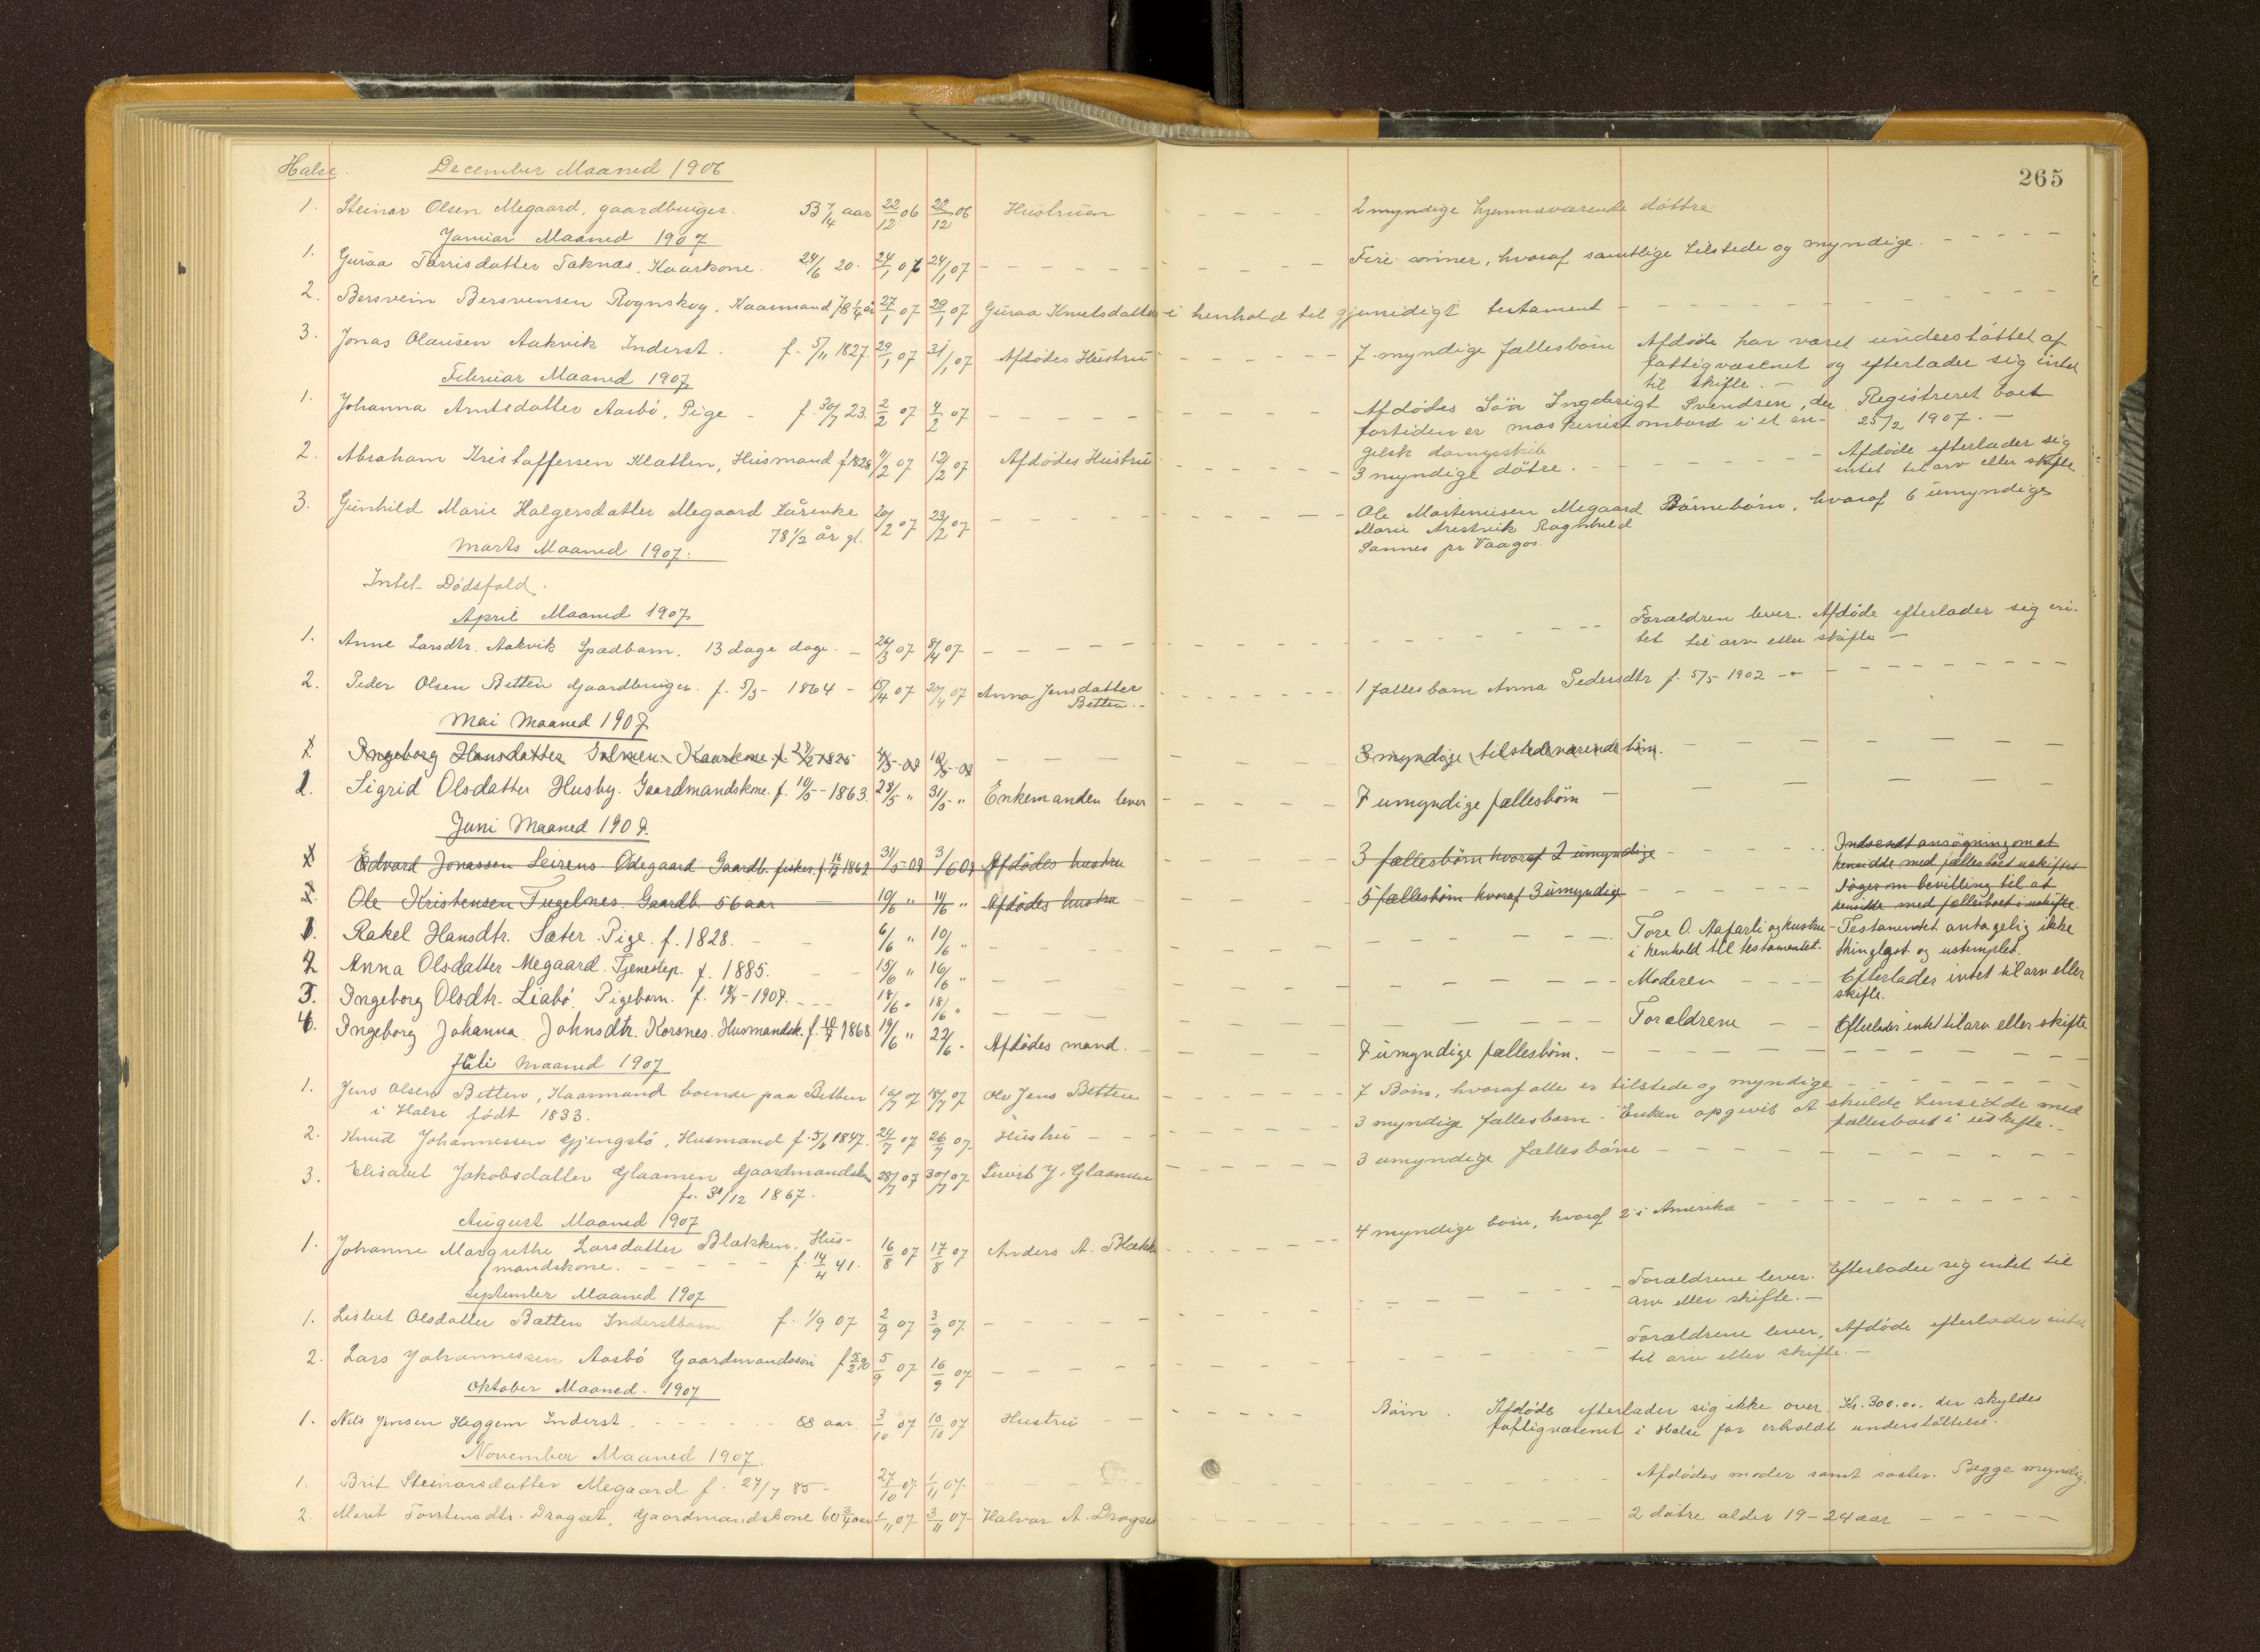 265
Halse. December Maaned 1906
1. Steinar Olsen Megaard, gaardbruger. 53 1/4 aar 22/12 06 22/12 06 Hustruen - - - - 2 myndige hjemmeværende døttre
Januar Maaned 1907
1. Guraa Tarrisdatter Taknæs, Kaarkone. 24/6 20. 24/1 07 24/1 07 - - - - Fire sønner, hvoraf samtlige tilstede og myndige. - - - -
2. Bersvein Bersvensen Rognskog, Kaarmand 78 1/4 år 27/1 07 29/1 07 Guraa Knutsdatter i henhold til gjensidigt testament - - - -
3. Jonas Olausen Aakvik Inderst. f. 5/11 1827. 29/1 07 31/1 07 Afdødes Hustru - - - - 7 myndige fællesbørn Afdøde har været understøttet af
fattigvæsenet og efterlader sig intet
til skifte. -
Februar Maaned 1907
1. Johanna Arntsdatter Aasbø, Pige - f. 30/7 23. 2/2 07 4/2 07 - - - - Afdødes Søn Ingebrigt Svendsen, der Registreret boet
fortiden er maskinist ombord i et en- 25/2 1907. -
gelsk dampskib
2. Abraham Kristoffersen Klætten, Husmand f 1828 11/2 07 12/2 07 Afdødes Hustru - - - - 3 myndige døtre. - - - - Afdøde efterlader sig
intet til arv eller skifte
3. Gunhild Marie Halgersdatter Megaard Kårenke 20/2 07 23/2 07 - - - - Ole Mortensen Megaard Børnebørn, hvoraf 6 umyndige
78 1/2 år gl. Marie Arestvik Ragnhild
Sannes pr Vaagos.
Marts Maaned 1907.
Intet Dødsfald.
April Maaned 1907
1. Anne Larsdtr. Aakvik Spædbarn, 13 dage dage. - 26/3 07 8/4 07 - - - - Forældren lever. Afdøde efterlader sig in-
tet til arv eller skifte -
2. Peder Olsen Betten Gaardbruger. f. 5/5 - 1864 - 15/4 07 20/4 07 Anna Jensdatter - - - - 1 fællesbarn Anna Pedersdtr f. 5/5 - 1902 - - - -
Betten. -
Mai Maaned 1907
1. Ingeborg Hansdatter Kaarkone f. 1825 4/5 - 07 10/5 - 07 - - - 3 myndige tilstedeværende børn. - - - -
1. Sigrid Olsdatter Husby. Gaardmandskone. f. 10/5 - 1863. 28/5 " 31/5 " Enkemanden lever - - - - 7 umyndige fællesbørn - - - -
Juni Maaned 1907.
1. Edvard Jonassen Leirens Ødegaard Gaardb. fisker f 1862 31/5 - 07 3/6 07 Afdødes hustru - - - - 3 fællesbørn hvoraf 2 umyndige - - - - Indsendt ansøgning om at
hensidde med fællesboet uskiftet
2. Ole Kristensen Fugelnes. Gaardb. 56 aar 10/6 " 11/6 " Afdødes hustru - - - - 5 fællesbørn hvoraf 3 umyndige - - - - Søger om bevilling til at
hensidde med fællesboet i uskifte.
1. Rakel Hansdtr. Sæter. Pige. f. 1828. - - 6/6 " 10/6 " - - - - Tore O. Aafarli og hustru - Testamentet antagelig ikke
i henhold til testamentet. thinglæst og ustemplet.
2 Anna Olsdatter Megaard. Tjenestep. f. 1885. - - 15/6 " 16/6 " - - - - Moderen - - - Efterlader intet til arv eller
skifte.
3. Ingeborg Olsdtr. Liabø. Pigebarn. f. - 1907. - - - 18/6 " 18/6 " - - - - Forældrene - - Efterlader intet til arv eller skifte
4. Ingeborg Johanna Johnsdtr. Korsnes. Husmandsk. f. 1868 19/6 " 22/6 " Afdødes mand. - - - - 7 umyndige fællesbørn. - - - -
Juli Maaned 1907
1. Jens Olsen Betten, Kaarmand boende paa Betten 16/7 07 18/7 07 Ole Jens Betten - - - - 7 Børn, hvoraf alle er tilstede og myndige - - - -
i Halse født 1833.
2. Knud Johannessen Gjengstø, Husmand f. 5/6 1847. 24/7 07 26/7 07 Hustru - - - - 3 myndige fællesbørn. Enken opgivet at skulde hensidde med
fællesboet i uskifte. -
3. Elisabet Jakobsdatter Glaamen Gaardmandskone 28/7 07 30/7 07 Sivert J. Glaamen - - - - 3 umyndige fællesbørn - - - -
f. 31/12 1867.
August Maaned 1907
1. Johanne Margrethe Larsdatter Blækken. Hus- 16/8 07 17/8 07 Anders A. Blækken - - - - 4 myndige børn, hvoraf 2 i Amerika - - - -
mandskone. - - - - f. 14/4 41.
September Maaned 1907
1. Lisbet Olsdatter Bætten Inderstbarn f. 1/9 07 2/9 07 3/9 07 - - - - Forældrene lever. Efterlader sig intet til
arv eller skifte. -
2. Lars Johannessen Aasbø Gaardmandssøn f 15/2 90 5/9 07 16/9 07 - - - - Forældrene lever, Afdøde efterlader intet
til arv eller skifte. -
Oktober Maaned. 1907
1. Nils Jensen Heggem Inderst. - - - - 88 aar. 3/10 07 10/10 07 Hustru - - - - Børn. Afdøde efterlader sig ikke over Kr. 300.00. der skyldes
fattigvæsenet i Halse for erholdt understøttelse.
November Maaned 1907.
1. Brit Steinarsdatter Megaard f. 27/7 85 - 27/10 07 1/11 07. - - - - Afdødes moder samt søster. Begge myndig.
2. Marit Torstensdtr. Dragset, Gaardmandskone 60 3/4 aar 1/11 07 3/11 07 Halvor A. Dragset - - - - 2 døtre alder 19 - 24 aar - - - -